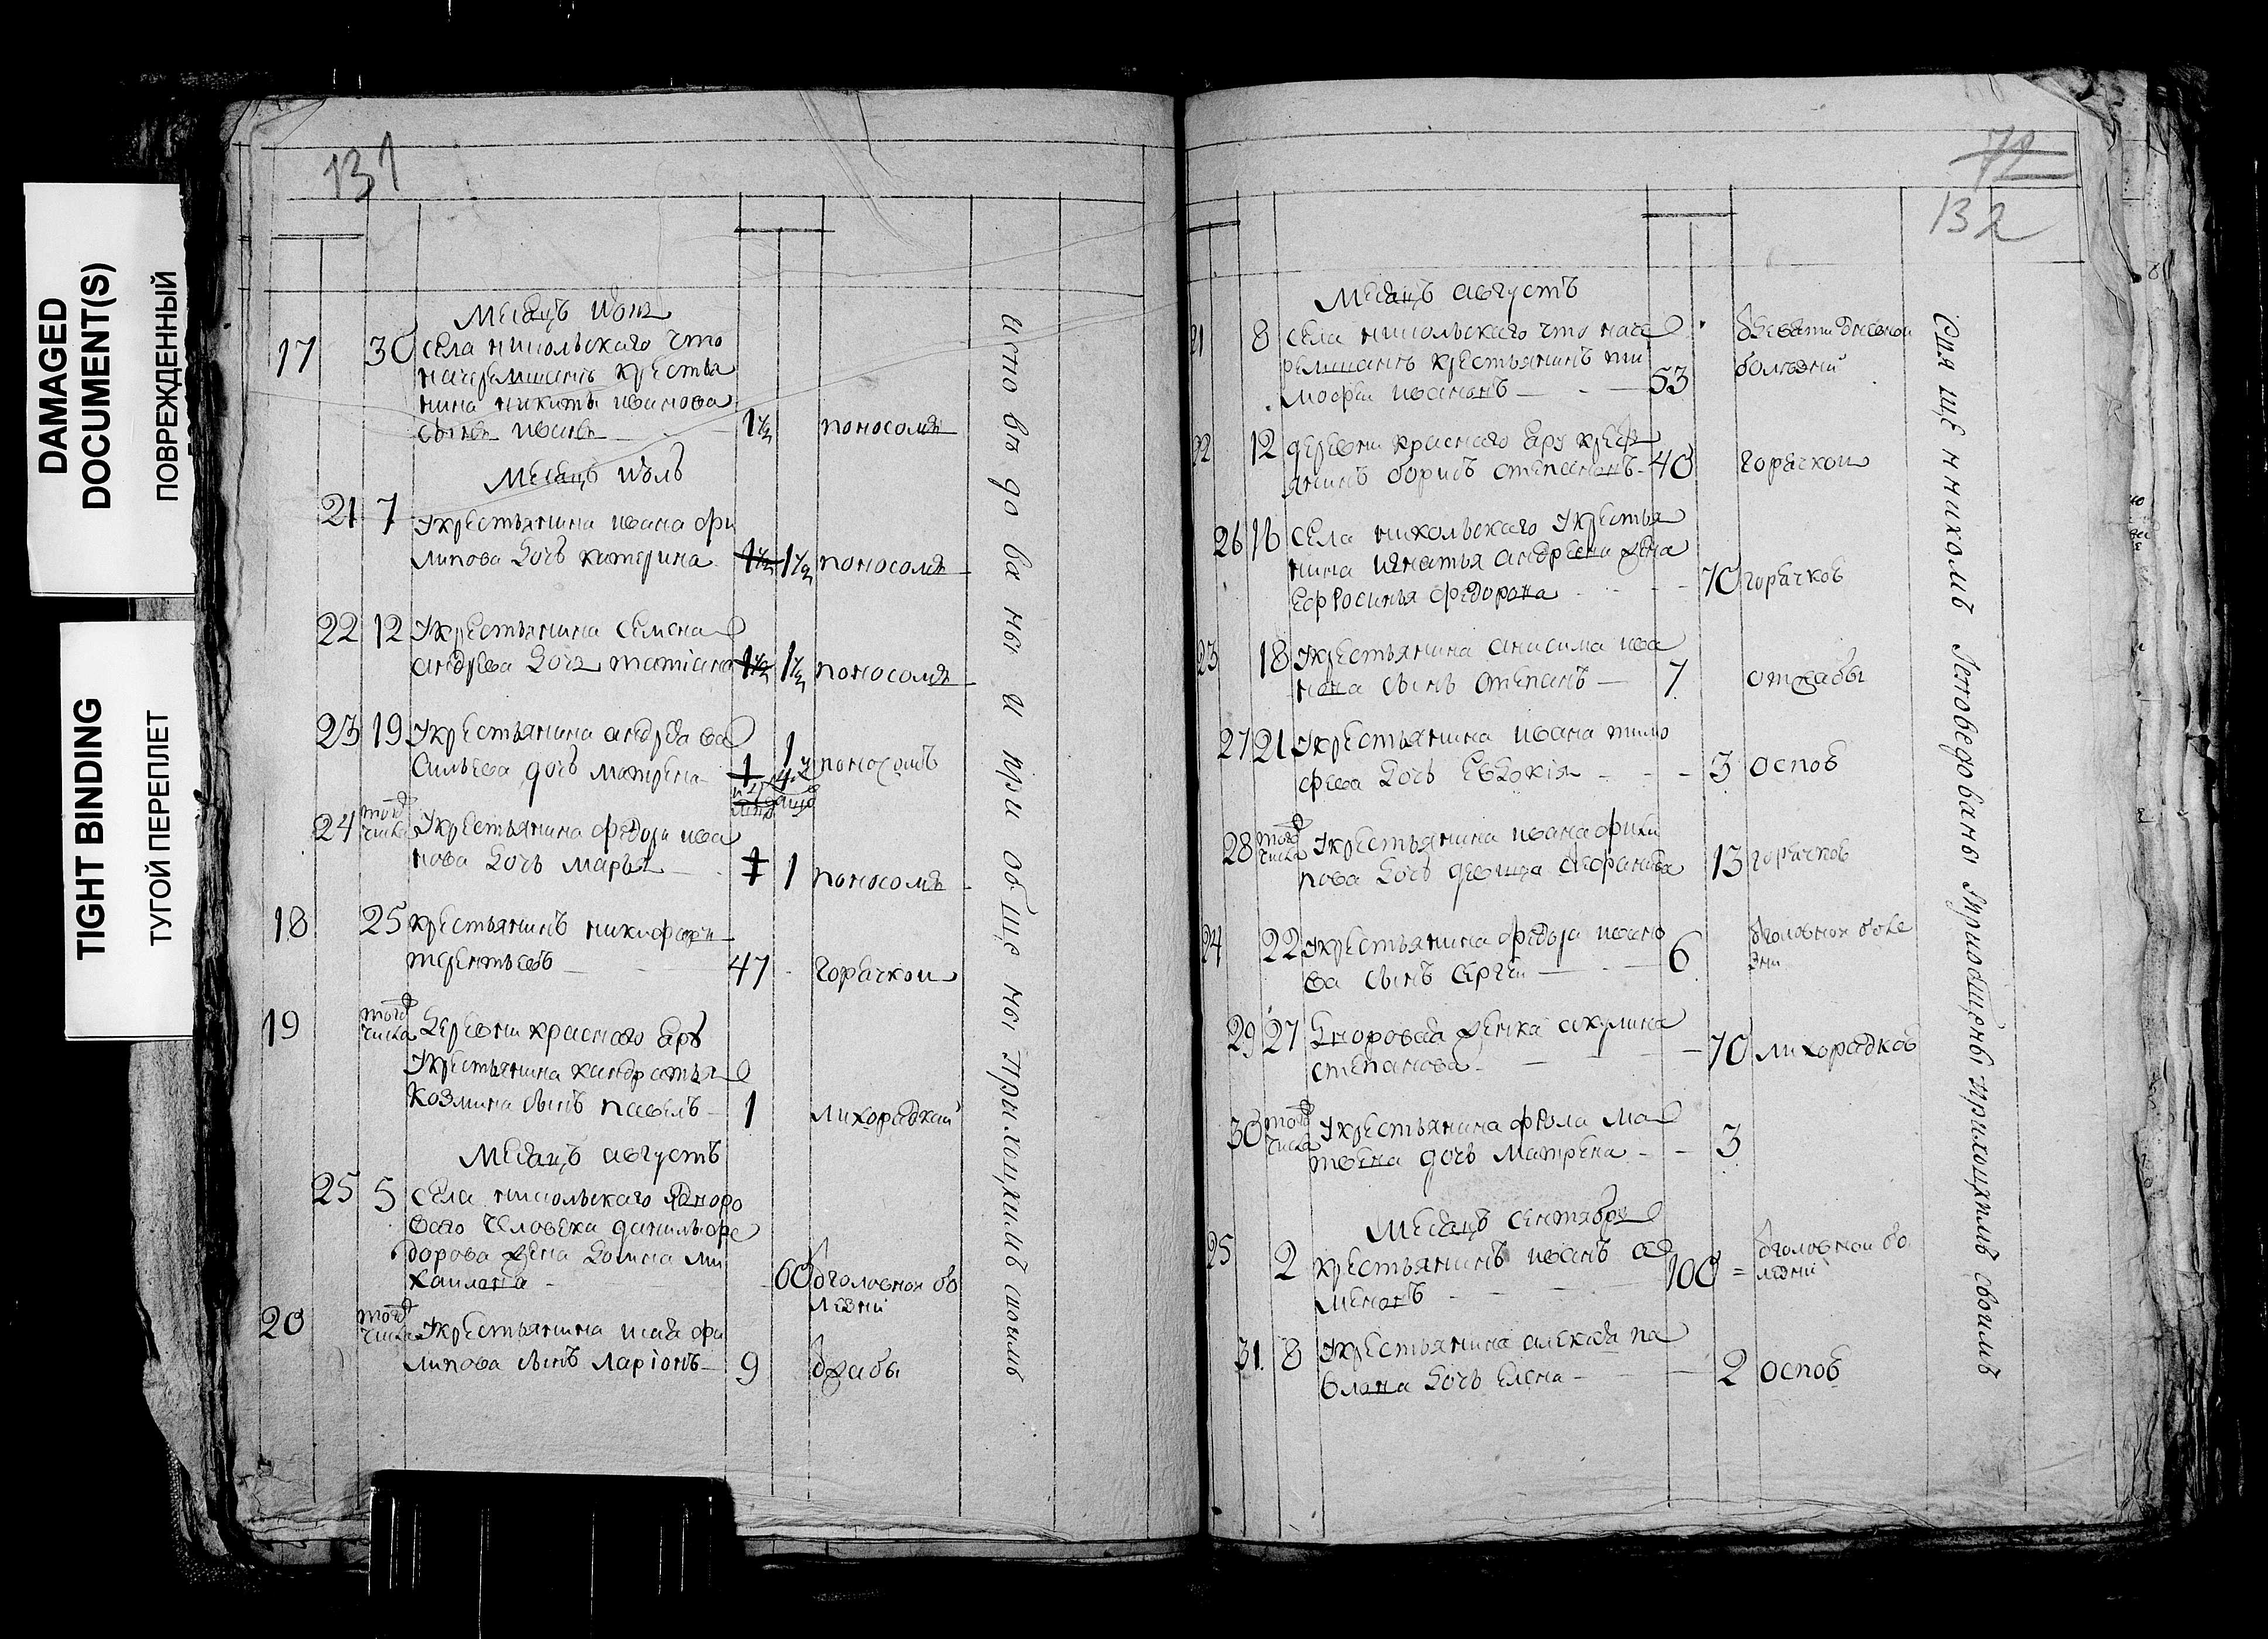 DAMAGED
DOCUMENT(S)
ПОВРЕЖДЕННЫЙ
TIGHT BINDING
ТУГОЙ ПЕРЕПЛЕТ
131
Месяцъ июнь
17 30 села никольского что
начеремшанъ крестья
нина никиты иванова
сынъ иванъ 1½ поносомъ
Месяцъ июль
21 7 Укрестьянина ивана фи
липова дочь катерина 1½ 1½ поносомъ
22 12 Укрестьянина семена
андрева дочь татіана 1½ 1½ поносомъ
23 19 Укрестьянина андрея ва
сильева дочь матрена 1 поносомъ
24 того числа Укрестьянина федора ива
нова дочь марья 1 1 поносомъ
18 25 крестьянинъ никифоръ
терентьевъ 47 горячкои
19 того числа деревни красного яру
Укрестьянина кандратья
козмина сынъ павелъ 1 лихорадкаи
Месяцъ августъ
25 5 села никольского дворо
ваго человека данилы фе
дорова жена домна ми
хаилова 60 вголовнои бо
лезни
20 того числа Укрестьянина исая фи
липова сынъ ларіонъ 9 вжабы
исповъдованы и приобщены приходкимъ своимъ
72
132
Месяцъ августъ
21 8 села никольского что наче
ремшанъ крестьянинъ ти
мофеи ивановъ 53
болъзни
22 12 деревни красного яру крест
янинъ борисъ степановъ 40 горячкои
26 16 села никольского Укрестья
нина игнатья андреева жена
ефросинья федорова 70 горячкоѵ
23 18 Укрестьянина анисима ива
нова сынъ степанъ 7 отжабы
27 21 Укрестьянина ивана тимо
фева дочь евдокія 3 оспоѵ
28 того числа Укрестьянина ивана фили
пова дочь девица стефанида 13 горячкоѵ
24 22 Укрестьянина федора ивано
ва сынъ сергеи 6 вголовнои боле
зни
29 27 дворовая женка акулина
степанова 70 лихорадкоѵ
30 того числа Укрестьянина фрола ма
твеева дочь матрена 3
Месяцъ сентябрь
25 2 крестьянинъ иванъ се
меновъ 100 вголовнои бо
лезни
31 8 Укрестьянина алексея па
влова дочь елена 2 оспоѵ
Священникомъ исповедованы иприобщены приходкимъ своимъ